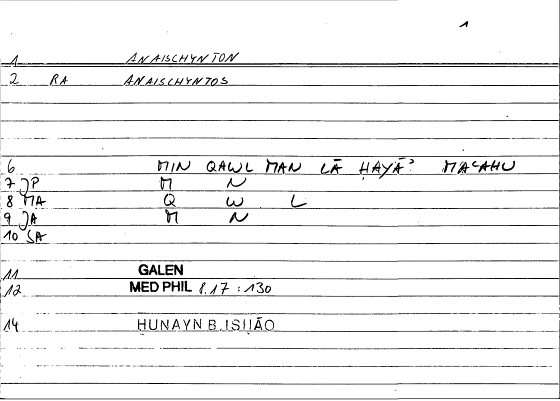 1
1 ANAISCHYNTON
2 RA ANAISCHYNTOS
6 MIN QAWL MAN LĀ ḤAYĀʾ MAʿAHU
7 JP M N
8 MA Q W L
9 JA M N
10 SA
11 GALEN
12 MED PHIL 8.17 : 130
14 HUNAYN B. ISḤĀQ